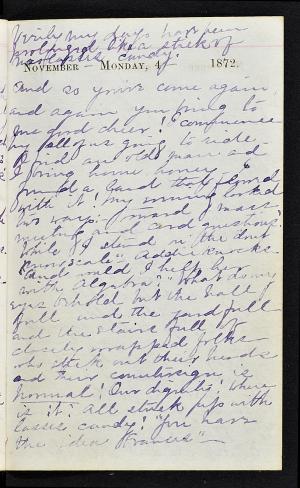 Verily my days have been
prolonged like a stick of
molasses candy!
November – Monday, 4 – 1872.
And so you've come again
and again you bring to
me good cheer! Commence
by all of us going to ride.
find an old man ad-
I bring home honey
found a land that flowed
with it! My evening looked
I made a mass
meeting and card questions.
While I stand in the door
Addie knocks
and could I help her
with Algebra? What do my
eyes behold but the hall
full and the yard full
and the stairs full of
closely wrapped folks
who stick out their heads
and their countersign is
Normal! Our dignity! Where
is it? All stuck up with
lasses candy! "You have
the idea Francis" –